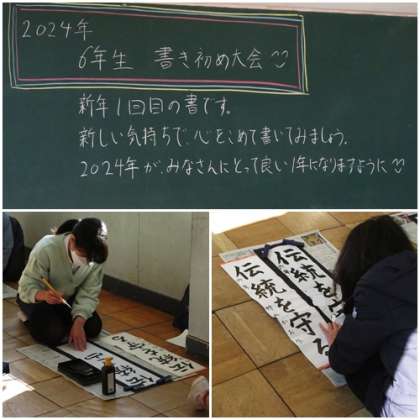 2024年
6年生 書き初め大会
新年1回目の書です。
新しい気持ちで、心をこめて書いてみましょう。
2024年が、みなさんにとって良い1年になりますように
伝統を守る
伝統を守る